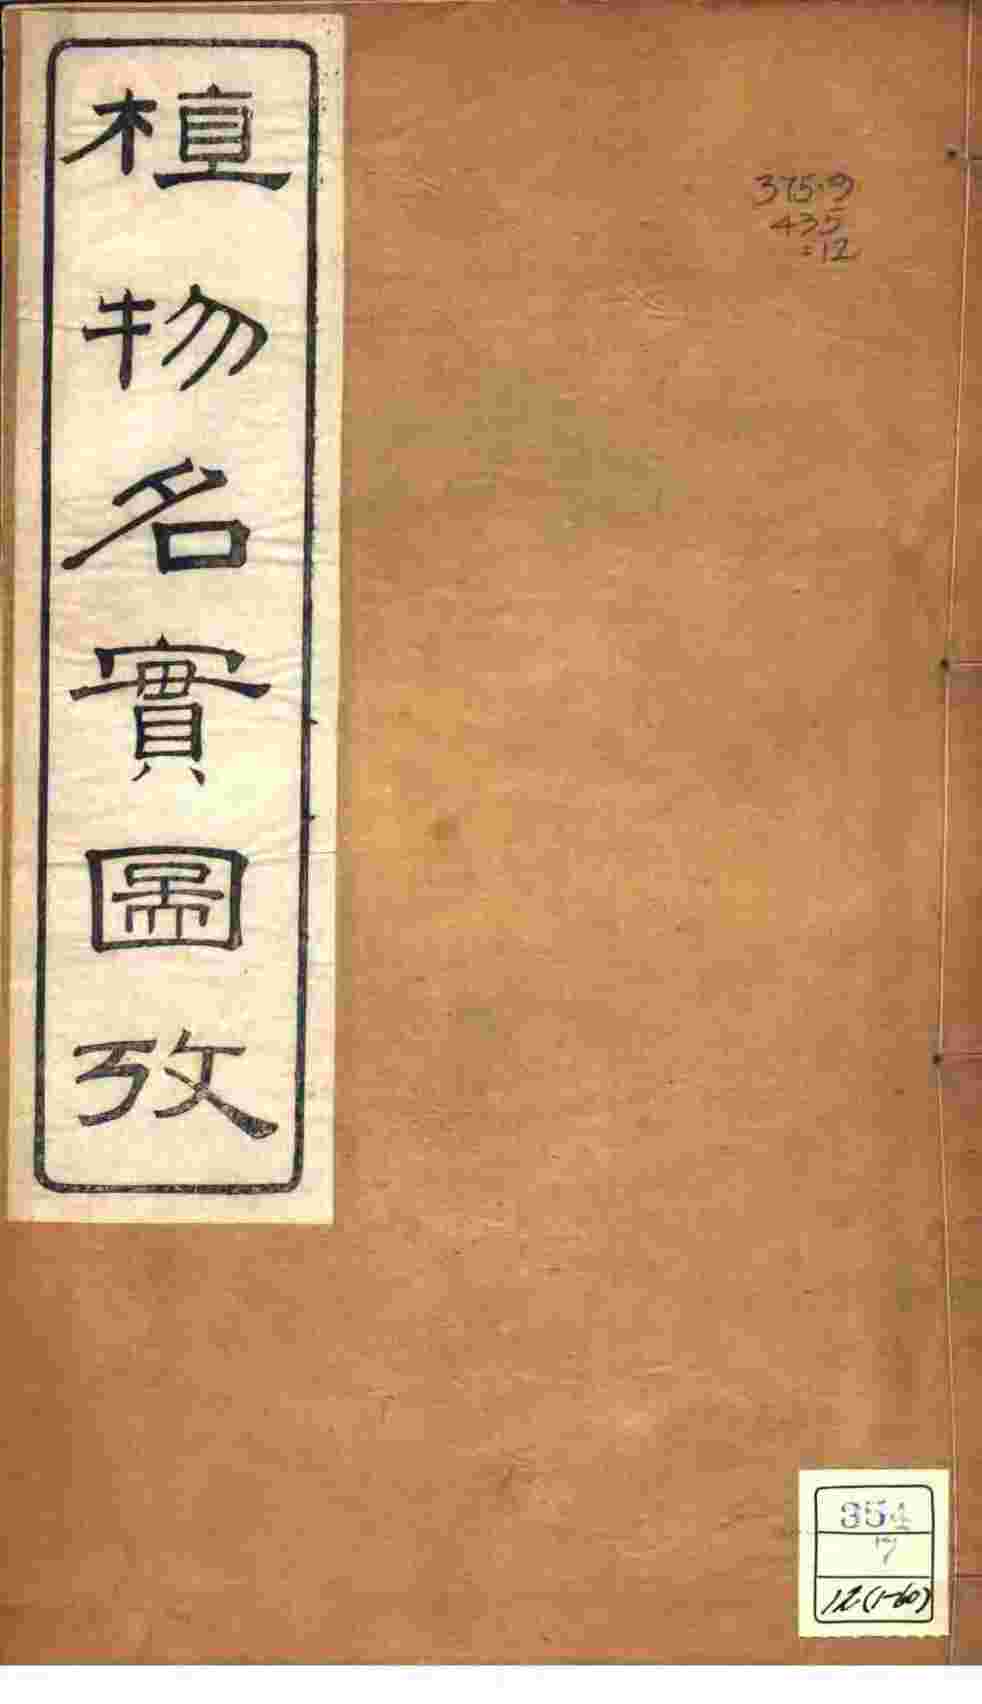 植物名實圖攷
375.9
435
:12
354
7
12(1-60)